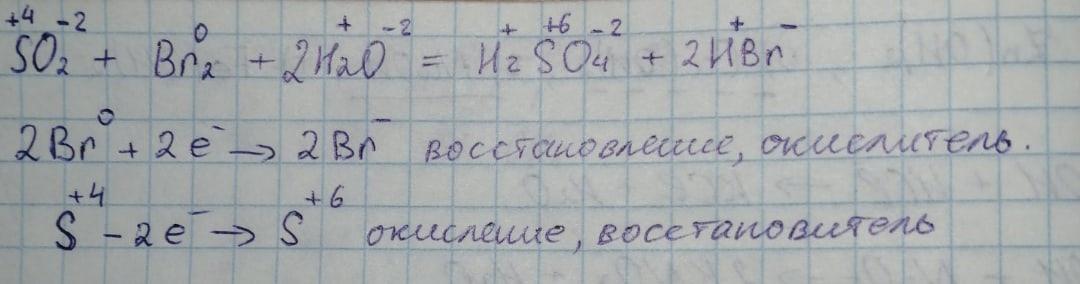 +4 -2 0 + -2 + +6 -2 + -
SO₂ + Br₂ + 2H₂O = H₂SO₄ + 2HBr
2Br⁰ + 2e⁻ → 2Br⁻ восстановление, окислитель.
S⁺⁴ - 2e⁻ → S⁺⁶ окисление, восстановитель